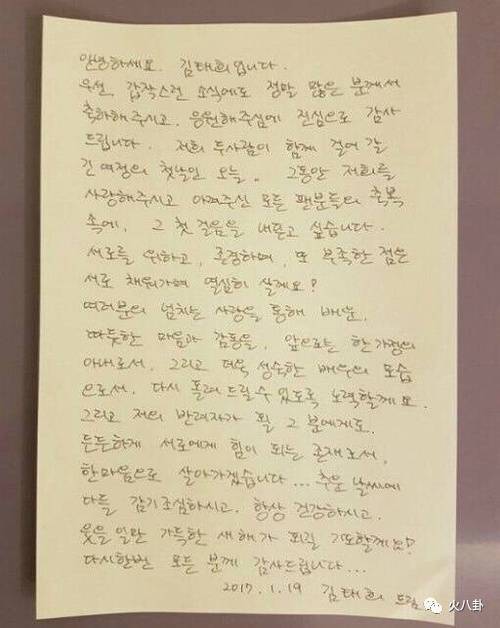 안녕하세요. 김태희입니다.
우선, 갑작스런 소식에도 정말 많은 분께서
축하해주시고, 응원해주심에 진심으로 감사
드립니다. 저희 두사람이 함께 걸어 갈
긴 여정의 첫날인 오늘.. 그동안 저희를
사랑해주시고 아껴주신 모든 팬분들의 축복
속에, 그 첫 걸음을 내딛고 싶습니다.
서로를 위하고, 존경하며, 또 부족한 점은
서로 채워가며 열심히 살게요!
여러분의 넘치는 사랑을 통해 배운,
따듯한 마음과 감동을, 앞으로는 한 가정의
아내로서, 그리고 더욱 성숙한 배우의 모습
으로서, 다시 돌려 드릴 수 있도록 노력할께요.
그리고 저의 반려자가 될 그 분에게도,
든든하게 서로에게 힘이 되는 존재로서,
한마음으로 살아가겠습니다... 추운 날씨에
다들 감기조심하시고, 항상 건강하시고,
웃을 일만 가득한 새해가 되길 기도할께요!
다시한번 모든 분께 감사드립니다...
2017. 1. 19 김태희 드림
火八卦